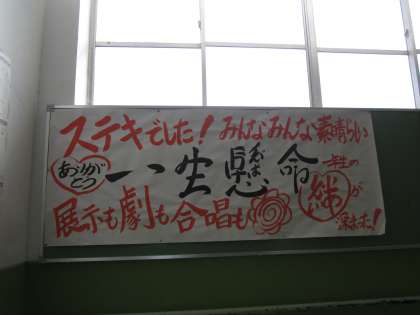 ステキでした！みんなみんな素晴らい
ありがとう
一生懸命
一生の
絆が
展示も劇も合唱も
深まった！